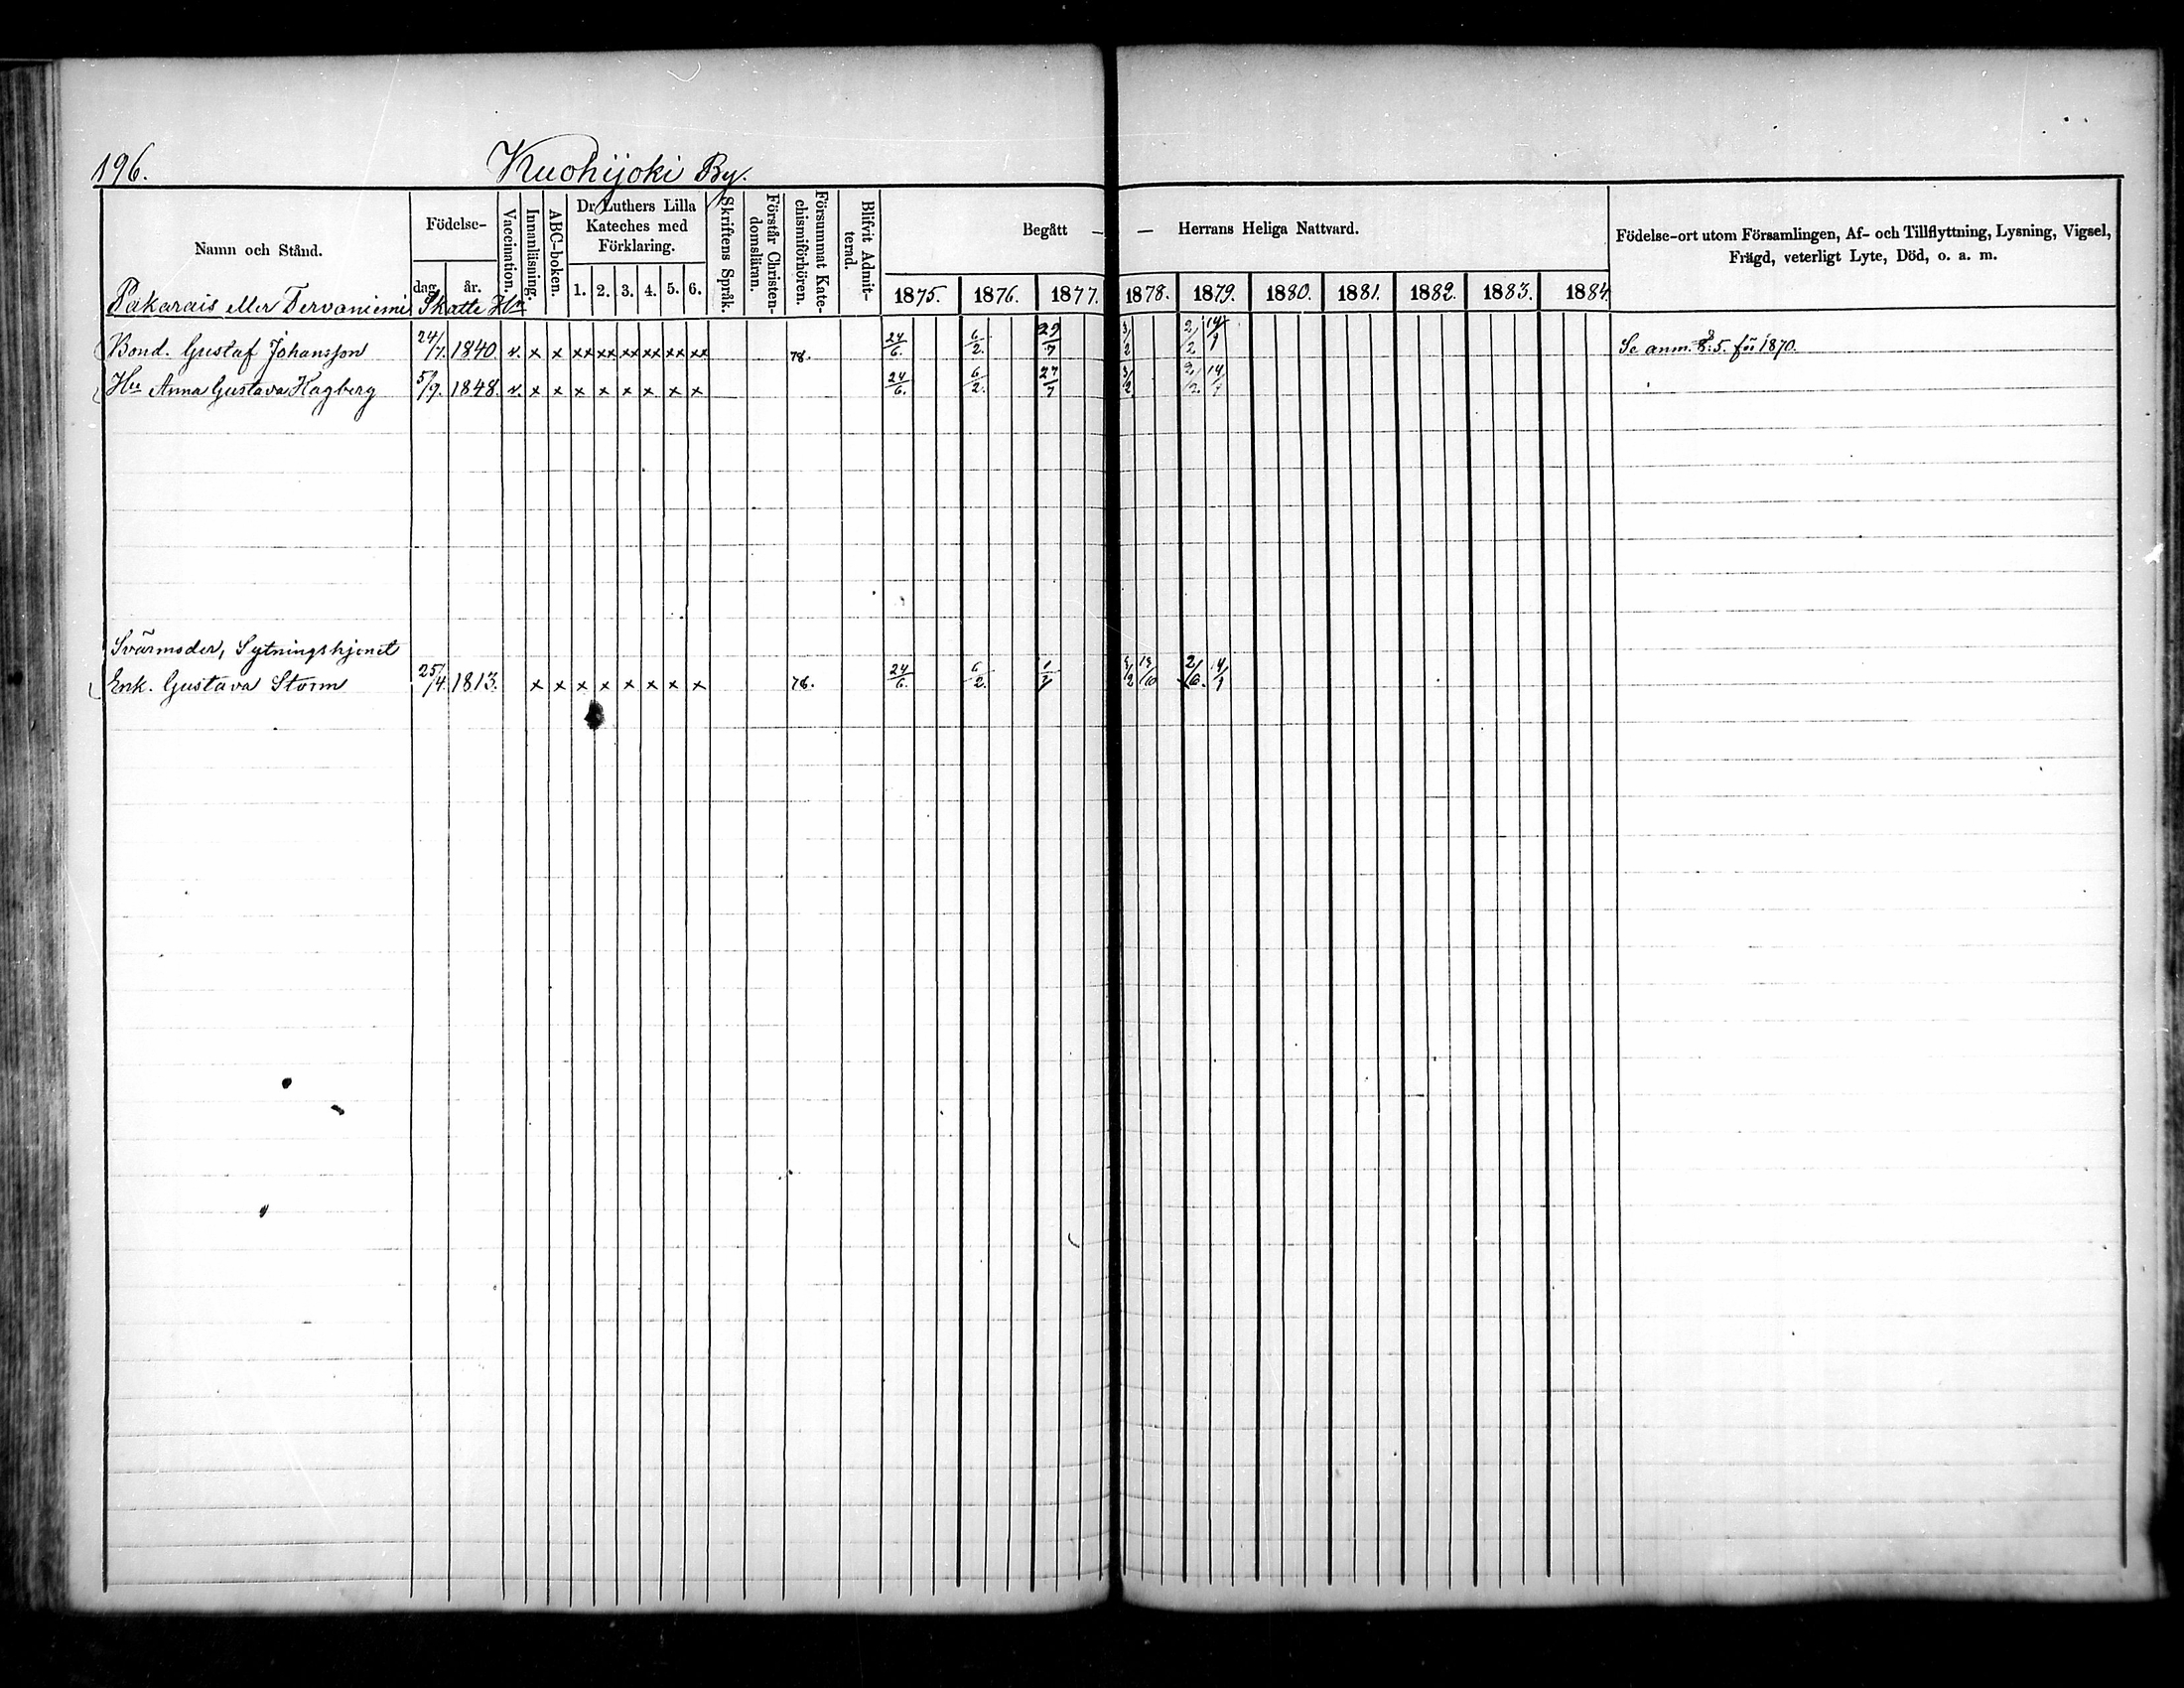 196.
Kuohijoki By.
Namn och Stånd.
Födelse-
dag. år.
Vaccination.
Innanläsning.
ABC-boken.
Dr Luthers Lilla
Kateches med
Förklaring.
1. 2. 3. 4. 5. 6.
Skriftens Språk.
Förstår Christen-
domsläran.
Försummat Kate-
chismiförhören.
Blifvit Admit-
terad.
Begått — — Herrans Heliga Nattvard.
1875. 1876. 1877. 1878. 1879. 1880. 1881. 1882. 1883. 1884
Födelse-ort utom Församlingen, Af- och Tillflyttning, Lysning, Vigsel,
Frägd, veterligt Lyte, Död, o. a. m.
Pakarais eller Tervaniemi Skatte Hn
Bond. Gustaf Johansson 24/7. 1840 v. x x xx xx xx xx xx xx 78. 24/6. 6/2. 29/7 3/2 2/2 14/9 Se anm. S: 5. för 1870.
Hu Anna Gustava Hagberg 5/9. 1848. v. x x x x x x x x 24/6. 6/2. 27/7 3/2 2/2. 14/9
Svärmoder, Sytningshjonet
Enk. Gustava Storm 25/4. 1813. x x x x x x x x 78. 24/6. 6/2. 3/2 2/6. 14/9